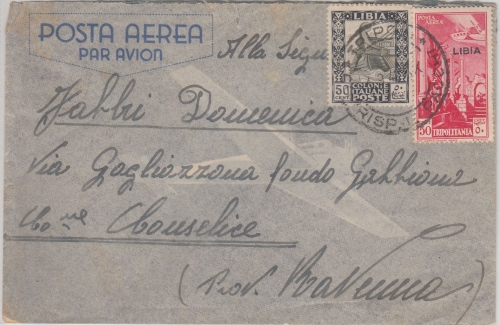 POSTA AEREA
PAR AVION
Alla Sigra
Fabbri Domenica
Via Gagliazzona fondo Gabbiana
Cone Conselice
(Prov. Ravenna)
LIBIA
50 CENT
COLONIE
ITALIANE
POSTE
POSTA AEREA
LIBIA
50
TRIPOLITANIA